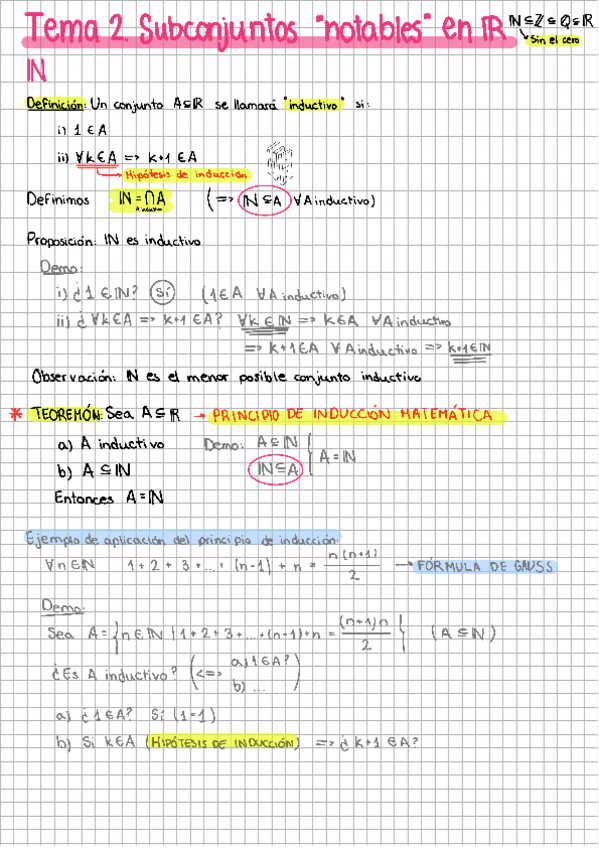 Tema 2. Subconjuntos "notables" en ℝ ℕ⊆ℤ⊆ℚ⊆ℝ
Sin el cero
ℕ
Definición: Un conjunto A⊆ℝ se llamará "inductivo" si:
i) 1∈A
ii) ∀k∈A => k+1∈A
Hipótesis de inducción
Definimos ℕ=∩A (=> ℕ⊆A ∀A inductivo)
A inductivo
Proposición: ℕ es inductivo
Demo:
i) ¿1∈ℕ? Sí (1∈A ∀A inductivo)
ii) ¿∀k∈A => k+1∈A? ∀k∈ℕ => k∈A ∀A inductivo
=> k+1∈A ∀A inductivo => k+1∈ℕ
Observación: ℕ es el menor posible conjunto inductivo
* TEOREMÓN: Sea A⊆ℝ → PRINCIPIO DE INDUCCIÓN MATEMÁTICA
a) A inductivo Demo: A⊆ℕ
b) A⊆ℕ ℕ⊆A } A=ℕ
Entonces A=ℕ
Ejemplo de aplicación del principio de inducción:
∀n∈ℕ 1+2+3+...+(n-1)+n = n(n+1)/2 → FÓRMULA DE GAUSS
Demo:
Sea A={n∈ℕ | 1+2+3+...+(n-1)+n = (n+1)n/2} (A⊆ℕ)
¿Es A inductivo? (<=> a) ¿1∈A?
b) ...)
a) ¿1∈A? Sí (1=1)
b) Si k∈A (HIPÓTESIS DE INDUCCIÓN) => ¿k+1∈A?